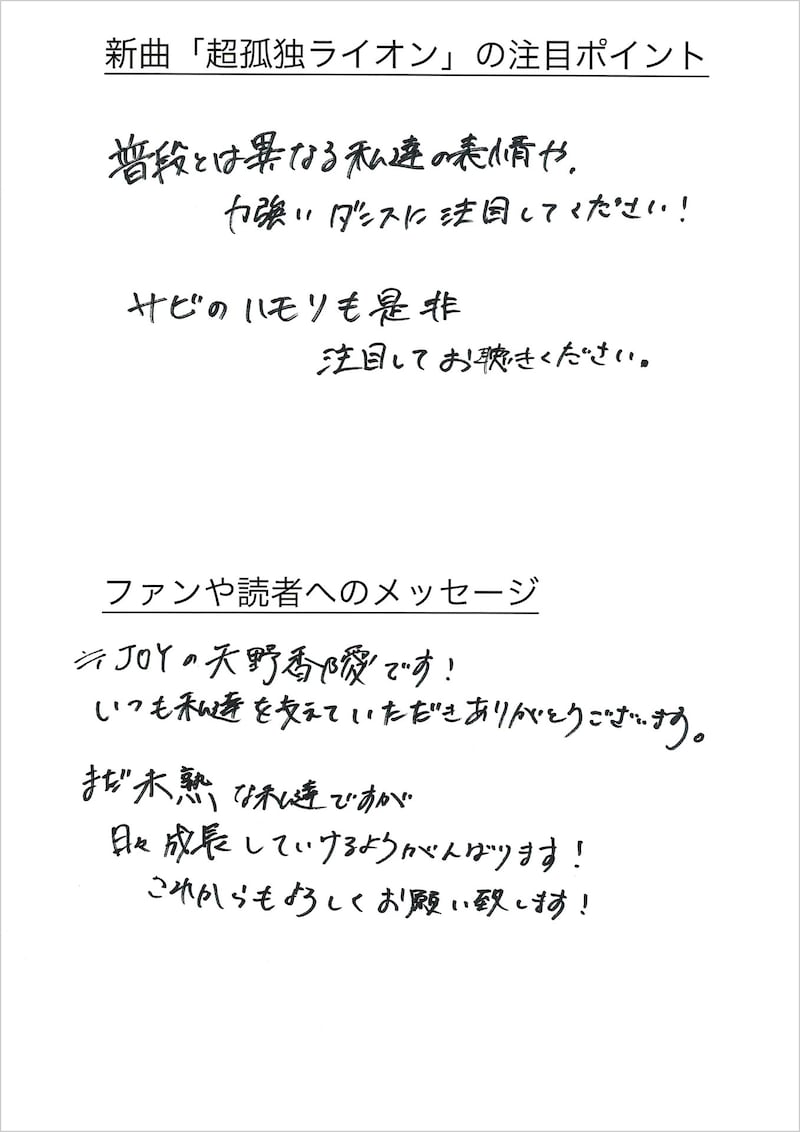 新曲「超孤独ライオン」の注目ポイント
普段とは異なる私達の表情や、
力強いダンスに注目してください!
サビのハモリも是非
注目してお聴きください。
ファンや読者へのメッセージ
≒JOYの天野香乃愛です!
いつも私達を支えていただきありがとうございます。
まだ未熟な私達ですが
日々成長していけるようがんばります!
これからもよろしくお願い致します!